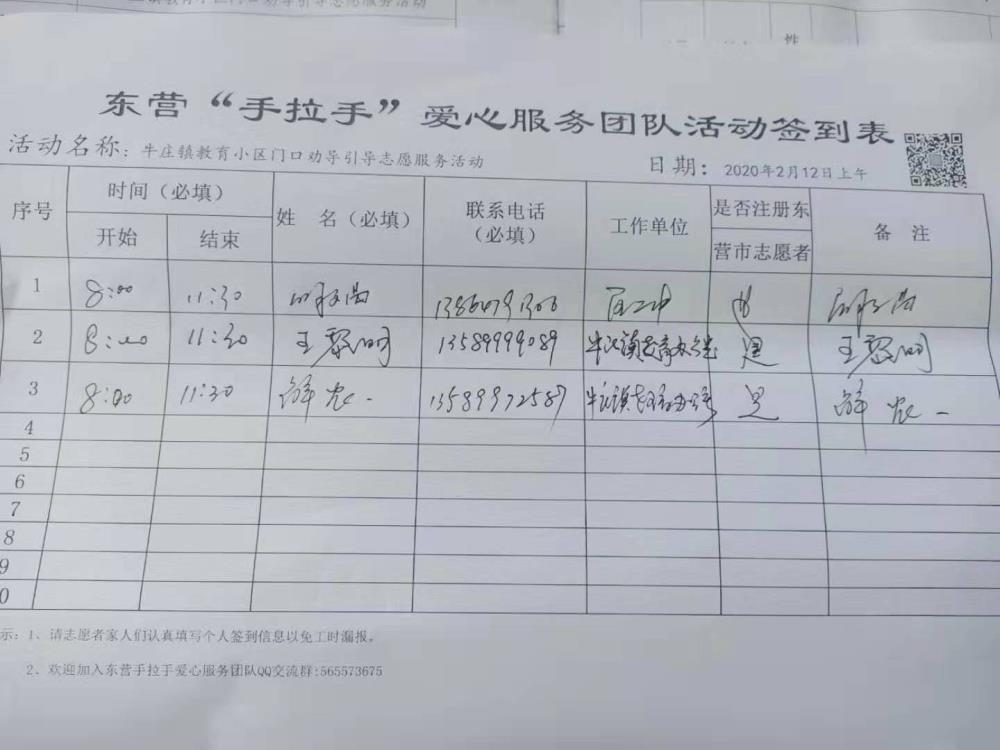 教育小区门口劝导引导志愿服务活动
性
东营“手拉手”爱心服务团队活动签到表
活动名称：牛庄镇教育小区门口劝导引导志愿服务活动 日期：2020年2月12日上午
序号 时间（必填） 姓 名（必填） 联系电话（必填） 工作单位 是否注册东营市志愿者 备 注
开始 结束
1 8:00 11:30
2 8:00 11:30 王黎明 13589999089 牛庄镇教育办公室 是 王黎明
3 8:00 11:30 13589972587 是
4
5
6
7
8
9
0
示：1、请志愿者家人们认真填写个人签到信息以免工时漏报。
2、欢迎加入东营手拉手爱心服务团队QQ交流群:565573675